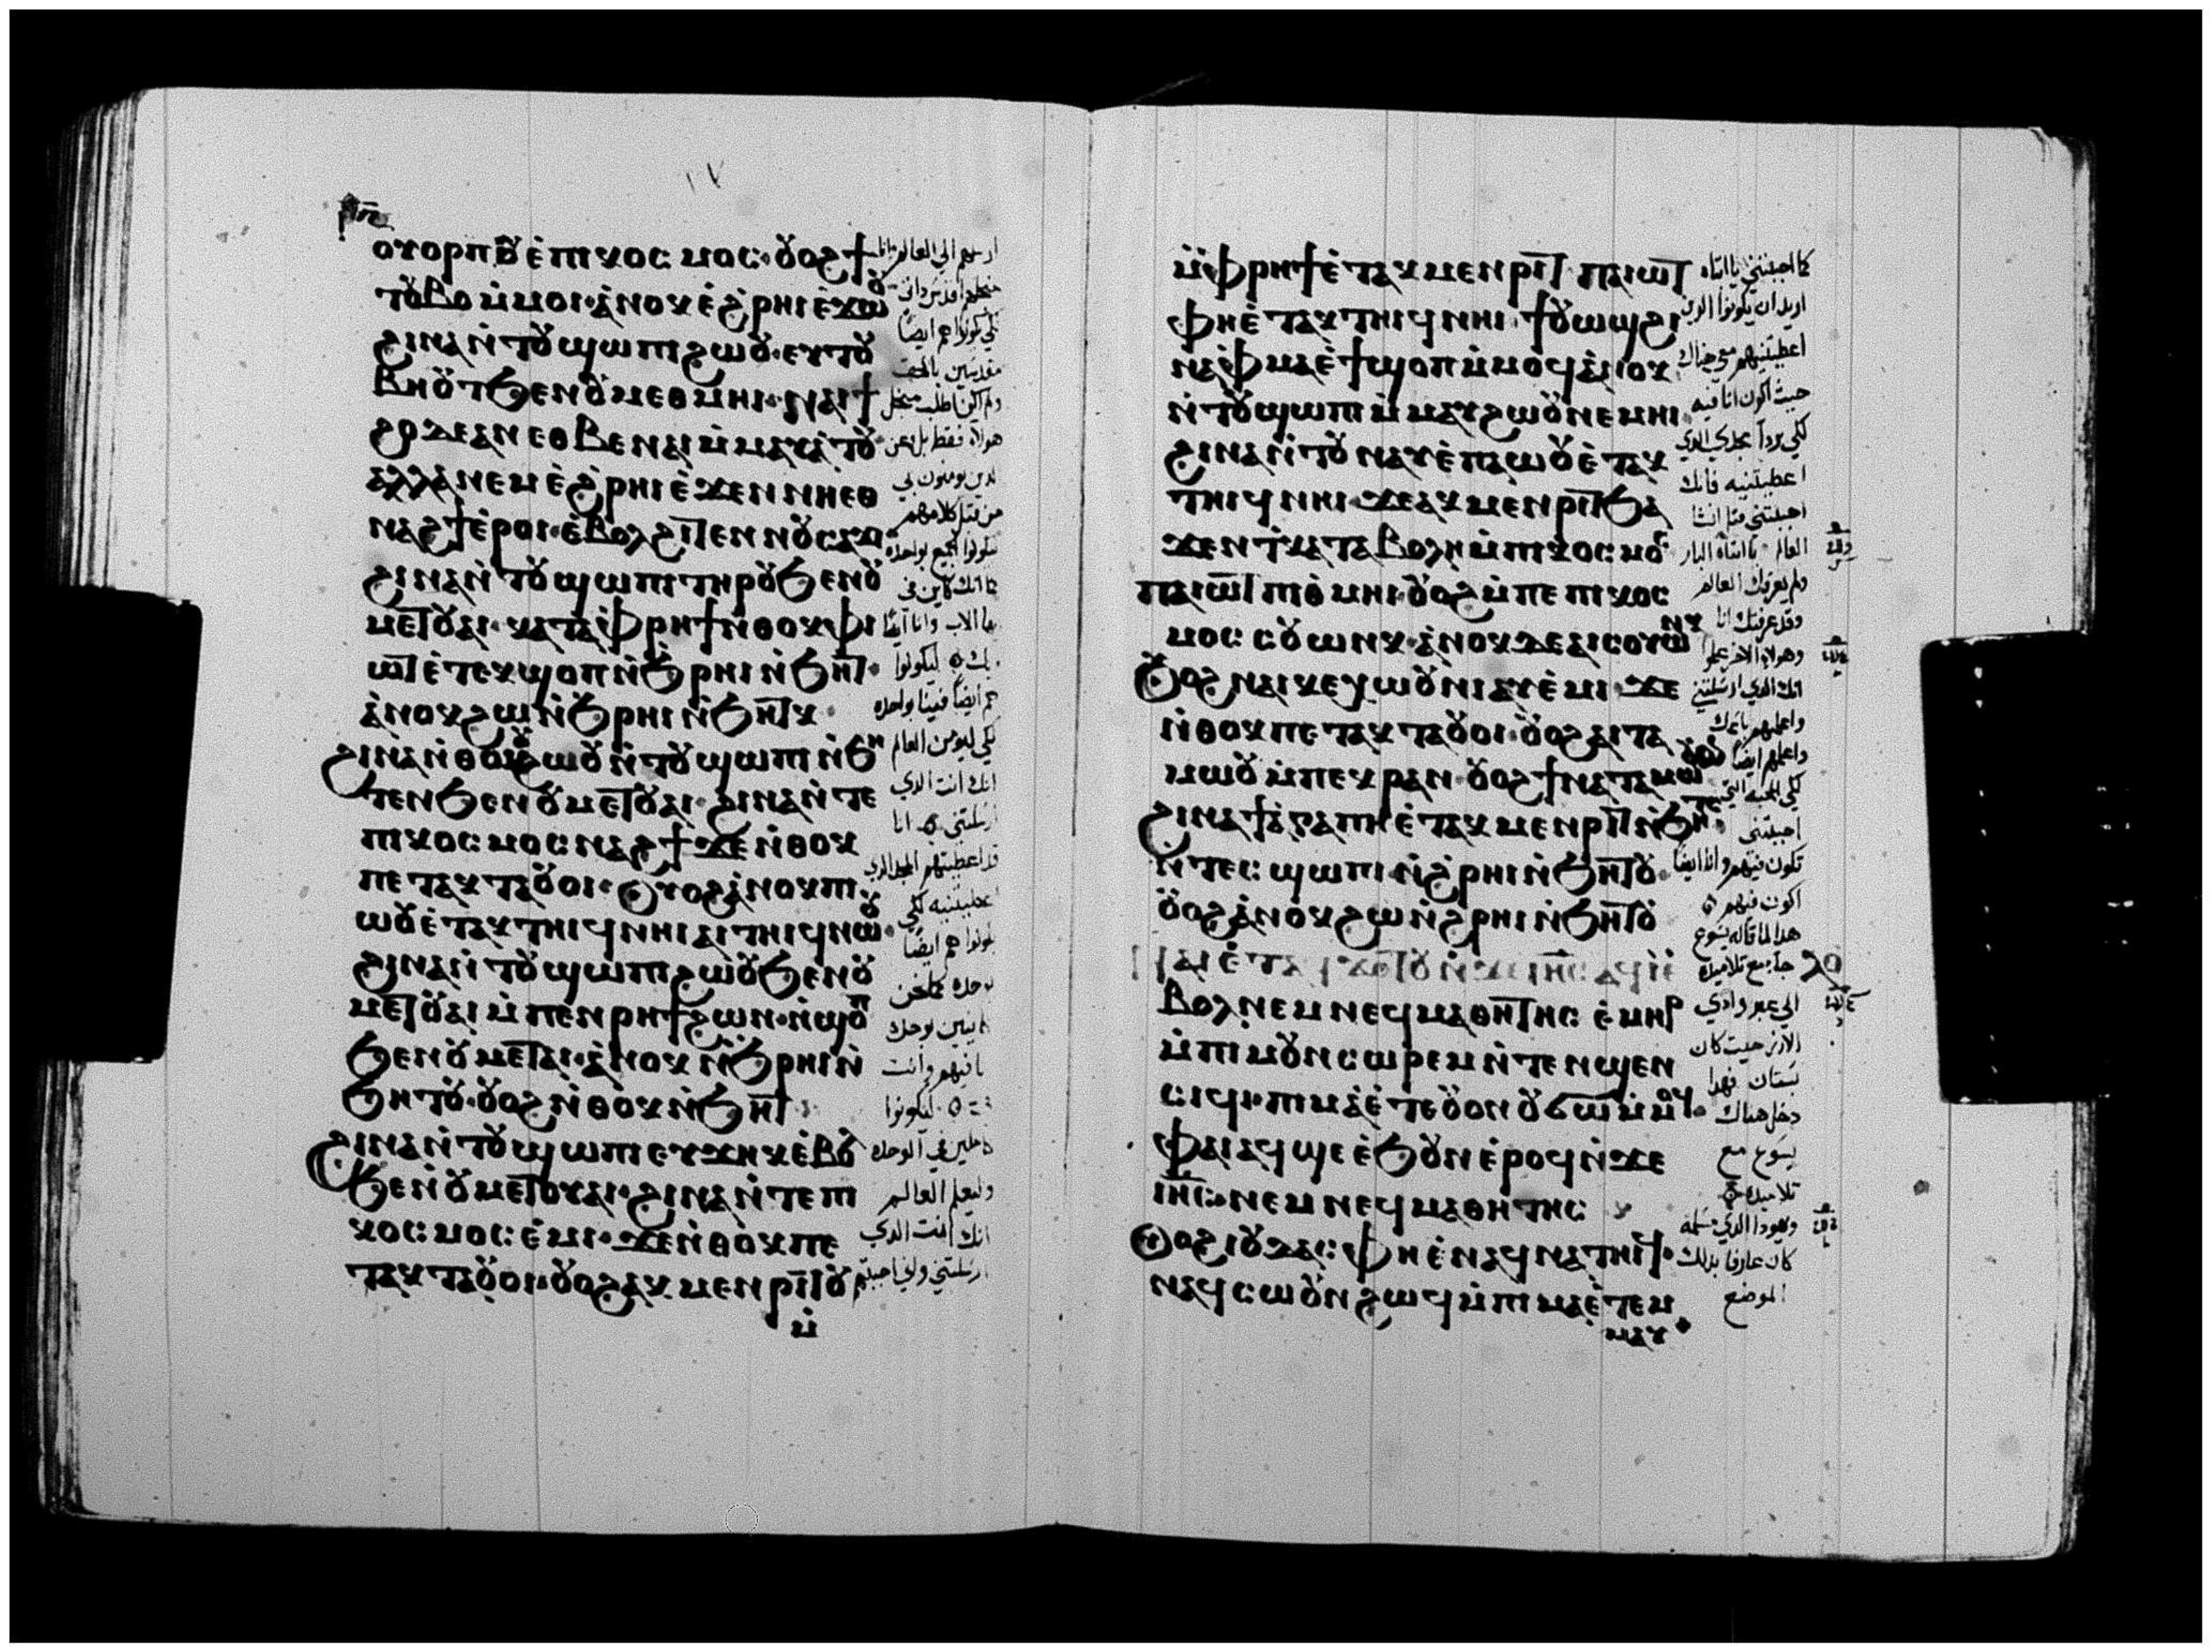 ١٧
ⲟⲩⲟⲣⲡⲟⲩ ⲉ̀ⲡⲓⲕⲟⲥⲙⲟⲥ· ⲟⲩⲟϩ ϯ
ⲧⲟⲩⲃⲟ ⲙ̀ⲙⲟⲓ· ⲁ̀ⲛⲟⲕ ⲉ̀ϩⲣⲏⲓ ⲉϫⲱⲟⲩ
ϩⲓⲛⲁ ⲛ̀ⲧⲟⲩϣⲱⲡⲓ ϩⲱⲟⲩ· ⲉⲩⲧⲟⲩ
ⲃⲏⲟⲩⲧ ϧⲉⲛ ⲟⲩⲙⲉⲑⲙⲏⲓ· ⲛⲁⲓϯ
ϩⲟ ⲇⲉ ⲁⲛ ⲉⲑⲃⲉ ⲛⲁⲓ ⲙ̀ⲙⲁⲩⲁ̀ⲧⲟⲩ·
ⲁⲗⲗⲁ ⲛⲉⲙ ⲉ̀ϩⲣⲏⲓ ⲉ̀ϫⲉⲛ ⲛⲏⲉⲑ
ⲛⲁϩϯ ⲉ̀ⲣⲟⲓ· ⲉ̀ⲃⲟⲗ ϩⲓⲧⲉⲛ ⲛⲟⲩⲥⲁϫⲓ
ϩⲓⲛⲁ ⲛ̀ⲧⲟⲩϣⲱⲡⲓ ⲧⲏⲣⲟⲩ ϧⲉⲛ ⲟⲩ
ⲙⲉⲧⲟⲩⲁⲓ· ⲕⲁⲧⲁ ⲫⲣⲏϯ ⲛ̀ⲑⲟⲕ ⲫⲓ
ⲱⲧ ⲉ̀ⲧⲉⲕϣⲟⲡ ⲛ̀ϧⲣⲏⲓ ⲛ̀ϧⲏⲧ·
ⲁ̀ⲛⲟⲕ ϩⲱ ⲛ̀ϧⲣⲏⲓ ⲛ̀ϧⲏⲧⲕ·
ϩⲓⲛⲁ ⲛ̀ⲑⲱⲟⲩ ϩⲱⲟⲩ ⲛ̀ⲧⲟⲩϣⲱⲡⲓ ⲛ̀ϧⲏ
ⲧⲉⲛ ϧⲉⲛ ⲟⲩⲙⲉⲧⲟⲩⲁⲓ· ϩⲓⲛⲁ ⲛ̀ⲧⲉ
ⲡⲓⲕⲟⲥⲙⲟⲥ ⲛⲁϩϯ ϫⲉ ⲛ̀ⲑⲟⲕ
ⲡⲉⲧⲁⲕⲧⲁⲟⲩⲟⲓ· ⲟⲩⲟϩ ⲁ̀ⲛⲟⲕ ⲡⲓ
ⲱⲟⲩ ⲉ̀ⲧⲁⲕⲧⲏⲓϥ ⲛⲏⲓ ⲁⲓⲧⲏⲓϥ ⲛⲱⲟⲩ·
ϩⲓⲛⲁ ⲛ̀ⲧⲟⲩϣⲱⲡⲓ ϩⲱⲟⲩ ϧⲉⲛ ⲟⲩ
ⲙⲉⲧⲟⲩⲁⲓ ⲙ̀ⲡⲉⲛⲣⲏϯ ϩⲱⲛ· ⲛ̀ϣⲟⲡ
ϧⲉⲛ ⲟⲩⲙⲉⲧⲁⲓ· ⲁ̀ⲛⲟⲕ ⲛ̀ϧⲣⲏⲓ ⲛ̀
ϧⲏⲧⲟⲩ· ⲟⲩⲟϩ ⲛ̀ⲑⲟⲕ ⲛ̀ϧⲏⲧ
ϩⲓⲛⲁ ⲛ̀ⲧⲟⲩϣⲱⲡⲓ ⲉⲩϫⲏⲕ ⲉ̀ⲃⲟⲗ
ϧⲉⲛ ⲟⲩⲙⲉⲧⲟⲩⲁⲓ· ϩⲓⲛⲁ ⲛ̀ⲧⲉ ⲡⲓ
ⲕⲟⲥⲙⲟⲥ ⲉ̀ⲙⲓ· ϫⲉ ⲛ̀ⲑⲟⲕ ⲡⲉ
ⲧⲁⲕⲧⲁⲟⲩⲟⲓ· ⲟⲩⲟϩ ⲁⲕⲙⲉⲛⲣⲓⲧⲟⲩ
ⲙ̀
ارسلهم الي العالم وانا
لكي يكونوا هم ايضًا
مقدسين بالحق
هولاء فقط بل وعن
من قبل كلامهم
هم ايضًا فينا بواحده
لكي ليومن العالم
انك انت الذي
ارسلتني ٥ انا
قد اعطيتهم المجد الذي
اعطيتنيه لكي
وليعلم العالم
انك انت الدي
ارسلتني واني احببتهم
ⲙ̀ⲫⲣⲏϯ ⲉ̀ⲧⲁⲕⲙⲉⲛⲣⲓⲧ ⲡⲁⲓⲱⲧ
ⲫⲏ ⲉ̀ⲧⲁⲕⲧⲏⲓϥ ⲛⲏⲓ· ϯⲟⲩⲱϣ ϩⲓ
ⲛⲁ ⲫⲙⲁ ⲉ̀ϯϣⲟⲡ ⲙ̀ⲙⲟϥ ⲁ̀ⲛⲟⲕ
ⲛ̀ⲧⲟⲩϣⲱⲡⲓ ⲙ̀ⲙⲁⲩ ϩⲱⲟⲩ ⲛⲉⲙⲏⲓ
ϩⲓⲛⲁ ⲛ̀ⲧⲟⲩⲛⲁⲩ ⲉ̀ⲡⲁⲱⲟⲩ ⲉ̀ⲧⲁⲕ
ⲧⲏⲓϥ ⲛⲏⲓ· ϫⲉ ⲁⲕⲙⲉⲛⲣⲓⲧ ϧⲁ
ϫⲉⲛ ⲧ̀ⲕⲁⲧⲁⲃⲟⲗⲏ ⲙ̀ⲡⲓⲕⲟⲥⲙⲟⲥ
ⲡⲁⲓⲱⲧ ⲡⲓⲑⲙⲏⲓ· ⲟⲩⲟϩ ⲙ̀ⲡⲉ ⲡⲓⲕⲟⲥ
ⲙⲟⲥ ⲥⲟⲩⲱⲛⲕ· ⲁ̀ⲛⲟⲕ ⲇⲉ ⲁⲓⲥⲟⲩⲱⲛⲕ
ⲟⲩⲟϩ ⲛⲁⲓⲕⲉⲭⲱⲟⲩⲛⲓ ⲁⲩⲉ̀ⲙⲓ· ϫⲉ
ⲛ̀ⲑⲟⲕ ⲡⲉⲧⲁⲕⲧⲁⲟⲩⲟⲓ· ⲟⲩⲟϩ ⲁⲓⲧⲁ
ⲙⲱⲟⲩ ⲙ̀ⲡⲉⲕⲣⲁⲛ· ⲟⲩⲟϩ ϯⲛⲁⲧⲁⲙⲱⲟⲩ
ϩⲓⲛⲁ ϯⲁ̀ⲅⲁⲡⲏ ⲉ̀ⲧⲁⲕⲙⲉⲛⲣⲓⲧ ⲛ̀ϧⲏⲧⲥ
ⲛ̀ⲧⲉⲥϣⲱⲡⲓ ⲛ̀ϩⲣⲏⲓ ⲛ̀ϧⲏⲧⲟⲩ·
ⲟⲩⲟϩ ⲁ̀ⲛⲟⲕ ϩⲱ ⲛ̀ϩⲣⲏⲓ ⲛ̀ϧⲏⲧⲟⲩ
ⲃⲟⲗ ⲛⲉⲙ ⲛⲉϥⲙⲁⲑⲏⲧⲏⲥ ⲉ̀ⲙⲏⲣ
ⲙ̀ⲡⲓⲙⲟⲩⲛⲥⲱⲣⲉⲙ ⲛ̀ⲧⲉ ⲛϣⲉⲛ
ⲥⲓϥⲓ· ⲡⲓⲙⲁ ⲉ̀ⲧⲉⲟⲩⲟⲛ ⲟⲩϭⲱⲙ ⲙ̀ⲙⲟϥ·
ⲫⲁⲓ ⲁϥϣⲉ ⲉ̀ϧⲟⲩⲛ ⲉ̀ⲣⲟϥ ⲛ̀ϫⲉ
ⲓⲏⲥ ⲛⲉⲙ ⲛⲉϥⲙⲁⲑⲏⲧⲏⲥ
ⲟⲩⲟϩ ⲓⲟⲩⲇⲁⲥ ⲫⲏ ⲉ̀ⲛⲁϥⲛⲁⲧⲏⲓϥ·
ⲛⲁϥⲥⲱⲟⲩⲛ ϩⲱϥ ⲙ̀ⲡⲓⲙⲁ ⲉ̀ⲧⲉⲙ
ⲙⲁⲩ
كما احببتني يا ابتاه
اريد ان يكونوا الدين
اعطيتنيهم معي هناك
حيث اكون انا فيه
لكي يروا مجدي الدي
اعطيتنيه فانك
احببتني قبل انشا
العالم يا ابتاه البار
ولم يعرفك العالم
وقد عرفتك انا
وهولاي الاخر علموا
انك الدي ارسلتني
واعلمهم ايضًا
لكي المحبه التي
احببتني
تكون فيهم وانا ايضًا
اكون فيهم ٥
هدا لما قاله يسوع
الي عبر وادي
الارز حيث كان
بستان فهدا
دخل هناك
يسوع مع
تلاميده
ويهودا الدي مسلمه
كان عارفا بدلك
الموضع